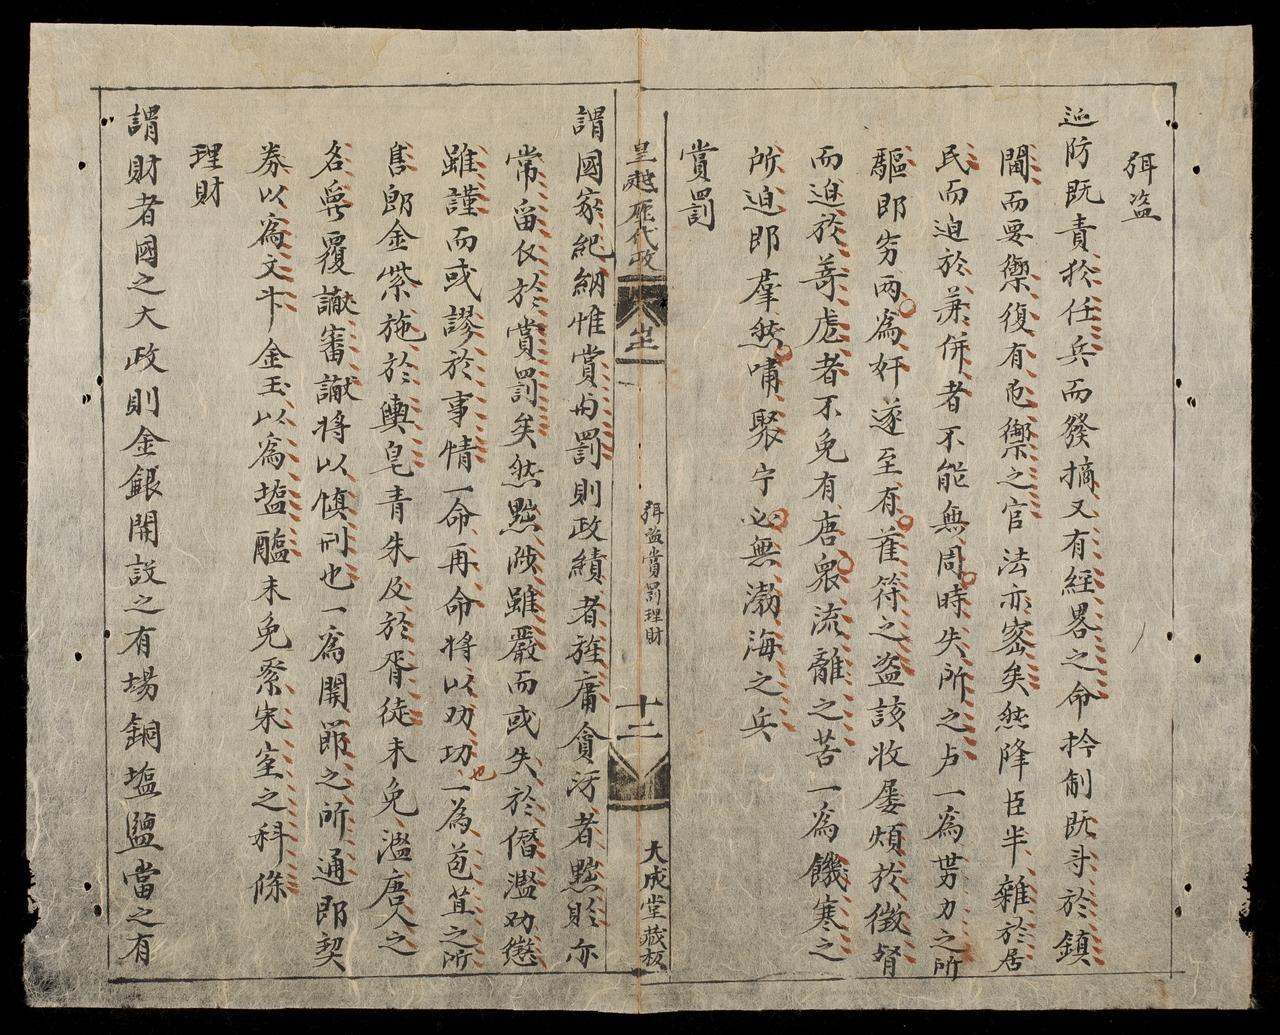 弭盜
巡防既責於任兵而發摘又有經畧之命拎制既寻於鎮
閫而要禦復有卮禦之官法亦密矣然降臣半雜於居
民而迫於兼併者不能無周時失所之占一為势力之所
驅即穷而為奸遂至有萑符之盗該收屡煩於徵督
而迫於苛虐者不免有唐衆流離之苦一為饑寒之
所迫即羣然嘯聚宁必無渤海之兵
賞罰
皇越歷代政
弭盜賞罰理財
十二
大成堂藏板
謂國家紀綱惟賞与罰則政績者旌庸貪汚者黜貶亦
常留仅於賞罰矣然黜陟雖嚴而或失於僭濫劝懲
雖謹而或謬於事情一命再命將以劝功也一為苞苴之所
售郎金紫施於輿皂青朱及於胥徒未免濫唐人之
名器覆讞審讞将以慎刑也一為開節之所通郎契
券以為文卞金玉以為塩醢未免紊宋室之科條
理財
謂財者國之大政則金銀開設之有場銅塩鹽當之有